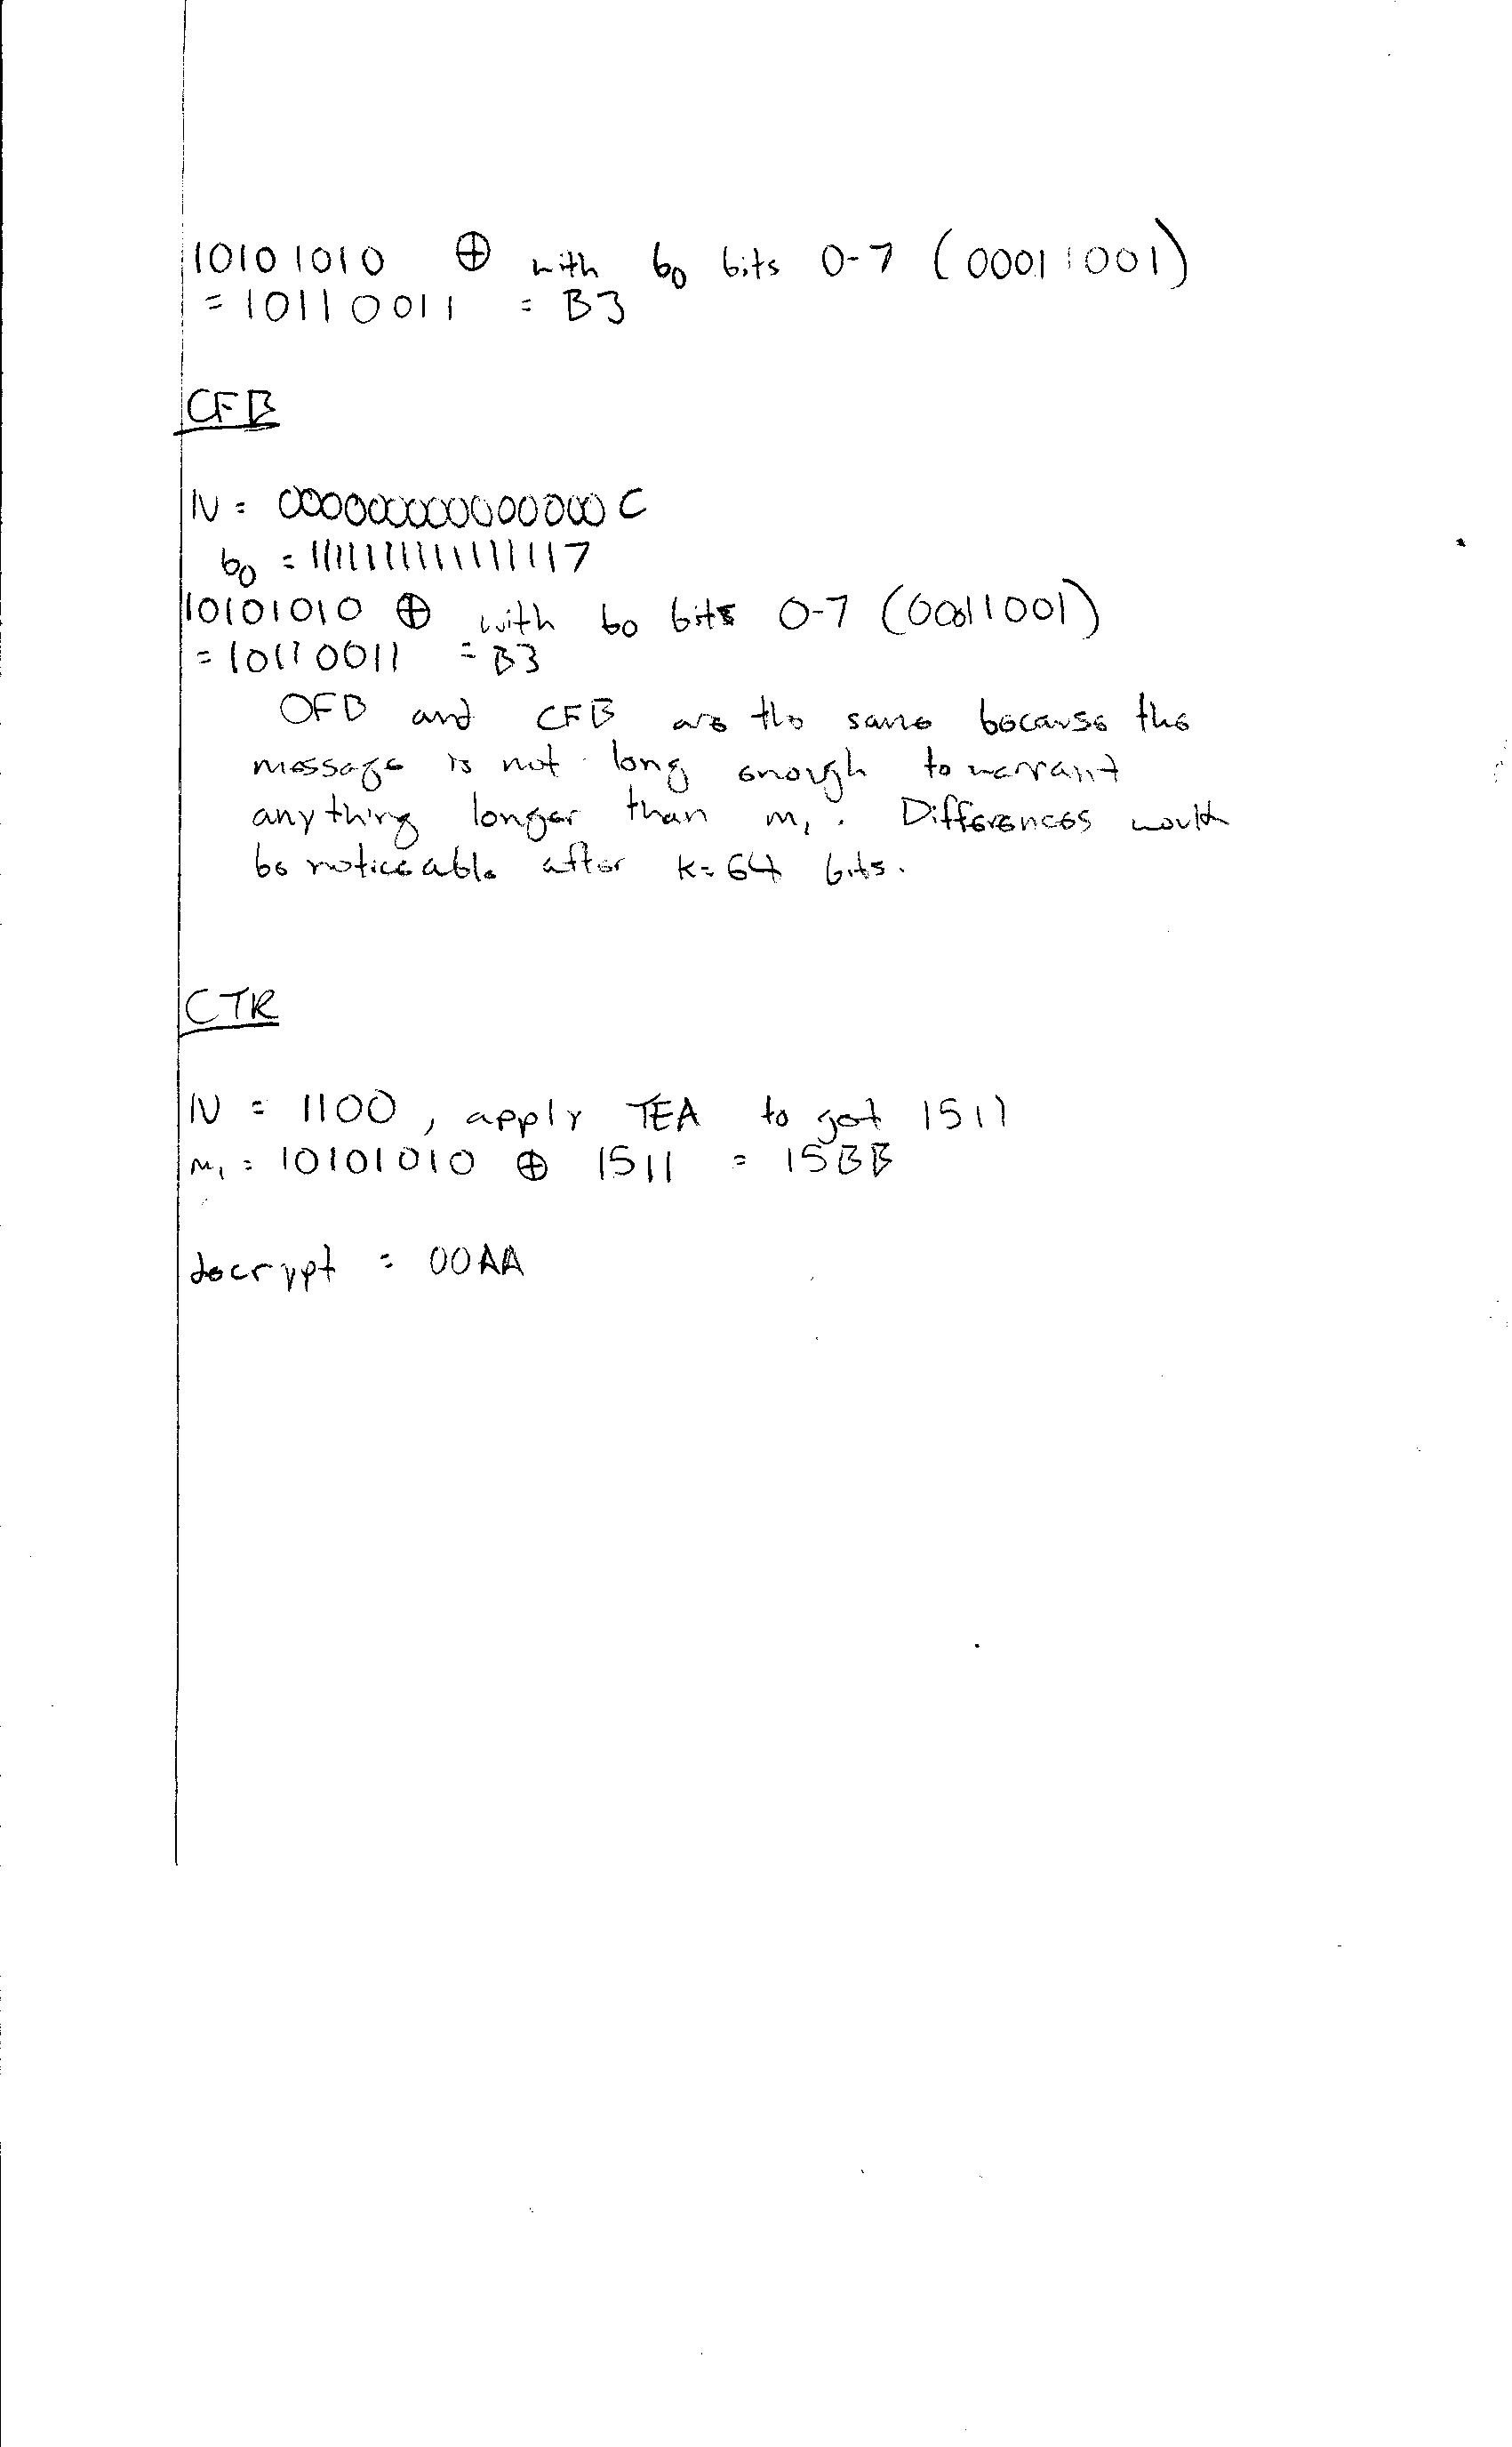 10101010 ⊕ with b0 bits 0-7 (00011001)
= 10110011 = B3
CFB
IV = 000000000000000C
b0 = 1111111111111117
10101010 ⊕ with b0 bits 0-7 (00011001)
= 10110011 = B3
OFB and CFB are the same because the
message is not long enough to warrant
anything longer than m1. Differences would
be noticeable after k=64 bits.
CTR
IV = 1100, apply TEA to get 1511
m1 = 10101010 ⊕ 1511 = 15BB
decrypt = 00AA